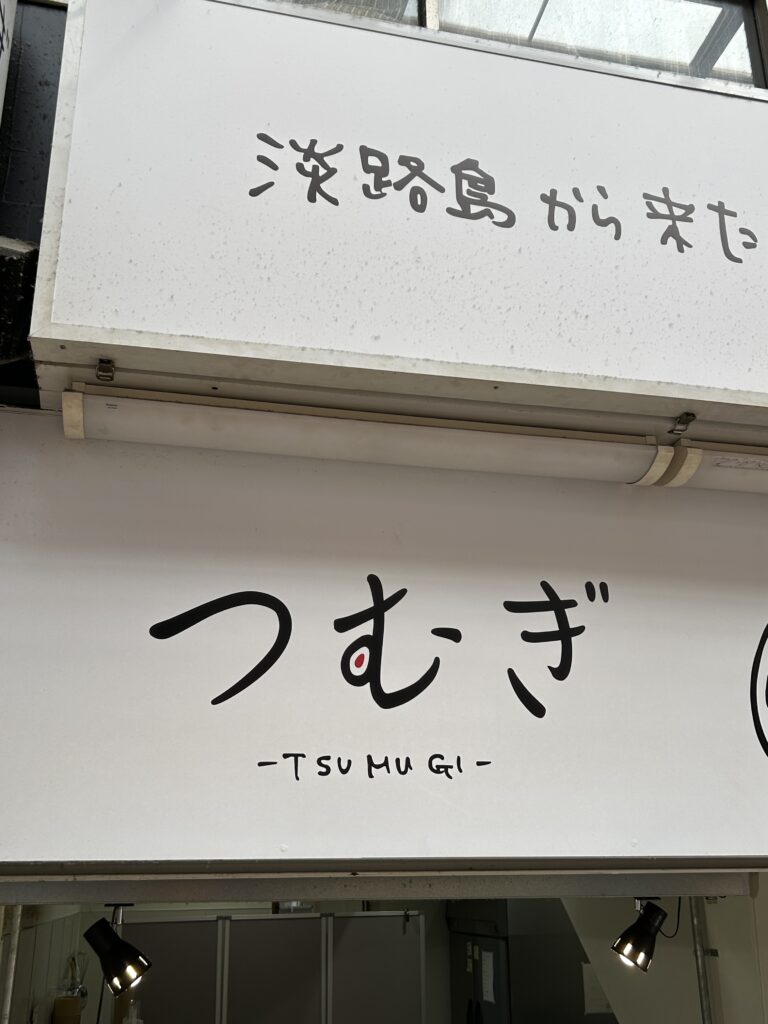 淡路島から来た
つむぎ
-TSUMUGI-